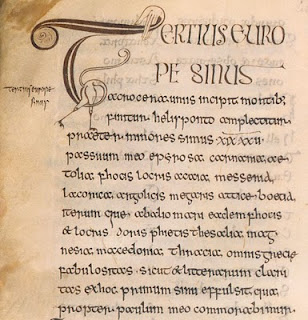 TERTIUS EURO
PE SINUS
tertius europe
sinus
acrocerauniis incipit montib;
finitur helisponto amplectitur
praeter minores sinus
passuum in eo epiros acarnania ae
tolia phocis locris acaia messenia
laconica argolicis megaris attice boetia
iterum que abalio mari eadem phocis
et locris doris phietis thesalia mag
nesia macedonia thracia omnis grecie
fabulositas sicut et litterarum clari
tas ex hoc primum sinu effulsit qua
propter paulum in eo commorabimur